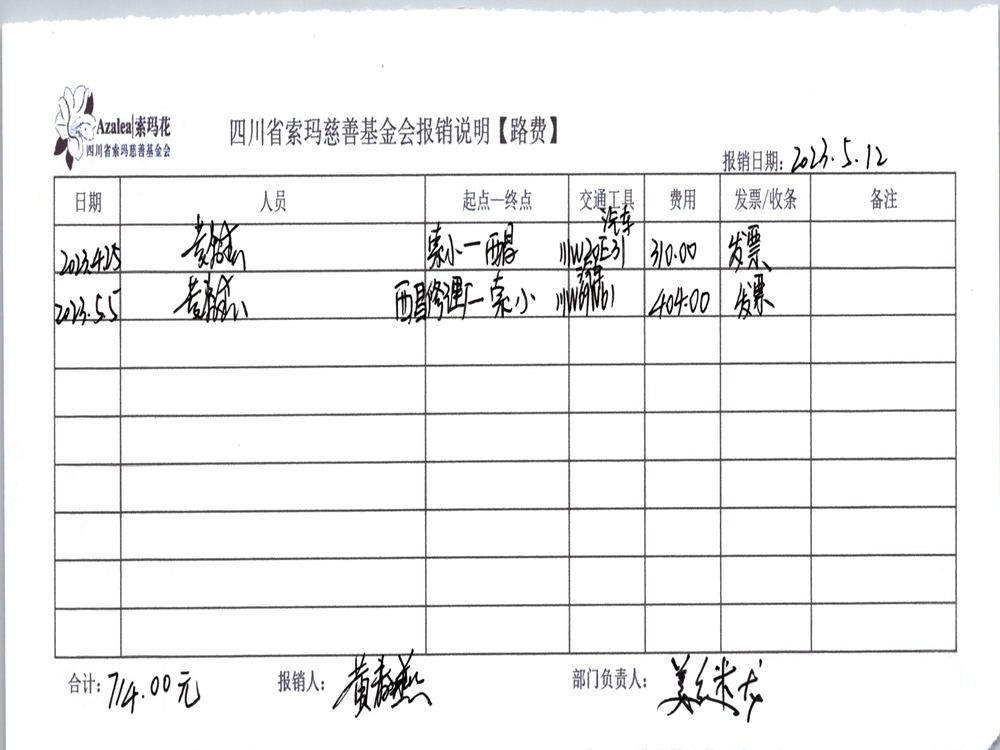 Azalea|索玛花
四川省索玛慈善基金会
四川省索玛慈善基金会报销说明【路费】
报销日期: 2023.5.12
日期 人员 起点—终点 交通工具 费用 发票/收条 备注
2023.4.25 索小—西昌 汽车 310.00 发票
2023.5.5 西昌修理厂—索小 404.00 发票
合计: 714.00元 报销人: 部门负责人: